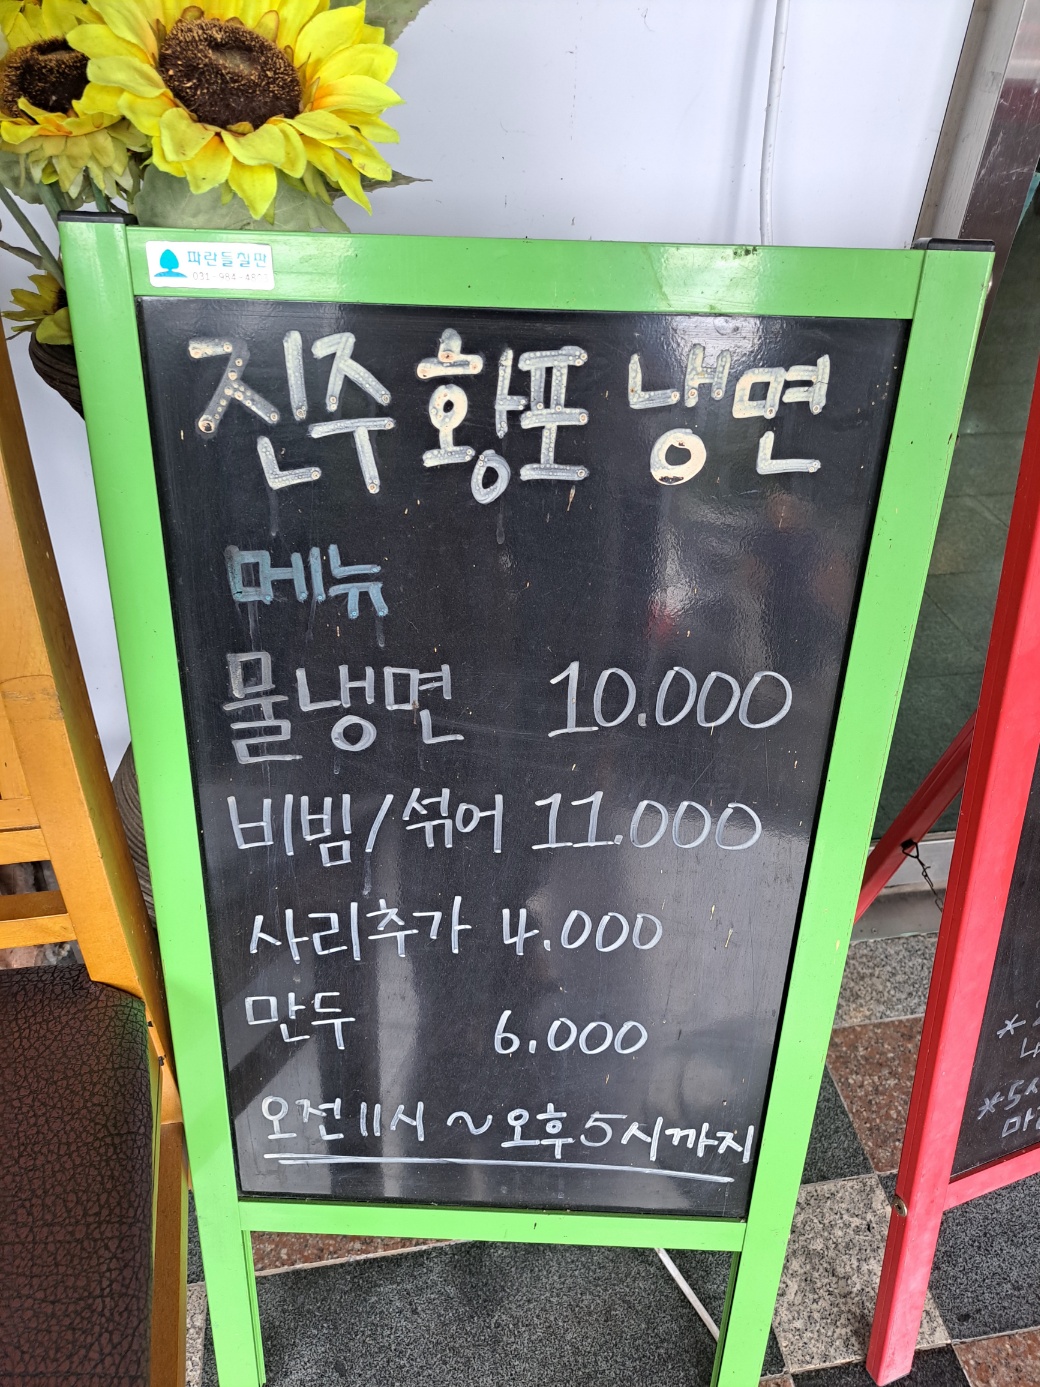 파란들칠판
진주 황포 냉면
메뉴
물냉면 10.000
비빔/섞어 11.000
사리추가 4.000
만두 6.000
오전 11시 ~ 오후 5시까지
*
*5시